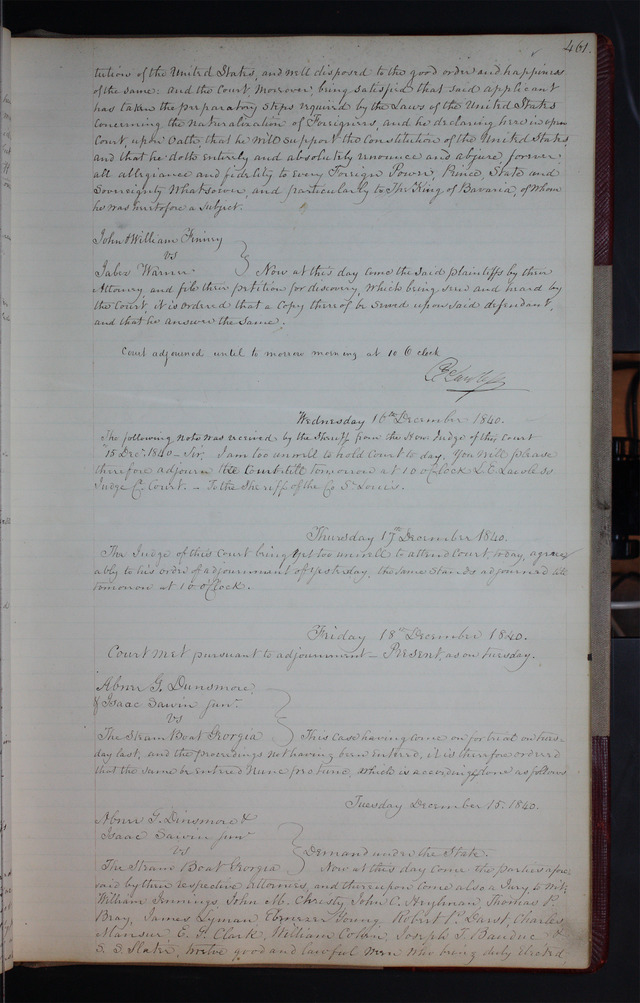 461.
tution of the United States, and well disposed to the good order and happiness
of the same: and the Court, Moreover, being satisfied that said applicant
has taken the preparatory steps required by the Laws of the United States
concerning the Naturalization of Foreigners, and he declaring here in open
Court, upon Oath, that he will support the Constitution of the United States
and that he doth entirely and absolutely renounce and abjure, forever
all allegiance and fidelity to every Foreign Power, Prince, State and
Sovereignty Whatsoever, and particularly to The King of Bavaria, of whom
he was heretofore a subject.
John & William Finney
vs
Jabez Warner Now at this day come the said plaintiffs by their
Attorney and file their petition for discovery, which being seen and heard by
the Court, it is ordered that a Copy thereof be served upon said defendant,
and that he answer the same.
Court adjourned until to morrow morning at 10 O clock
Wednesday 16th December 1840.
The following note was received by the Sheriff from the Hon. Judge of this Court
"15 Decr. 1840 - Sir, I am too unwell to hold Court to day. You will please
therefore adjourn the Court till tomorrow at 10 o'Clock L. E. Lawless
Judge C. Court. - To the Sheriff of the Co St. Louis.
Thursday 17th December 1840.
The Judge of this Court being yet too unwell to attend Court, today, agree-
ably to his order of adjournment of yesterday, the same stands adjourned till
tomorrow at 10 o'Clock.
Friday 18th December 1840.
Court met pursuant to adjournment - Present, as on Tuesday.
Abner G. Dunsmore,
& Isaac Sawin Junr.
vs
The Steam Boat Georgia This case having come on for trial on tues-
day last, and the proceedings not having been entered, it is therefore ordered
that the same be entered Nunc pro tunc, which is accordingly done as follows
Tuesday December 15. 1840.
Abner G. Dinsmore &
Isaac Sawin Junr
vs Demand under the State.
The Steam Boat Georgia Now at this day come the parties afore-
said by their respective Attorneys, and thereupon come also a Jury, to wit;
William Jennings, John M. Christy, John C. Thomas P.
Bray, James Lyman, Ebenezer Young, Robert P. Darst, Charles
Mansur, E. P. Clark, William Colan, Joseph T. Bauduc &
S. S. Slater, twelve good and lawful men who being duly Elected